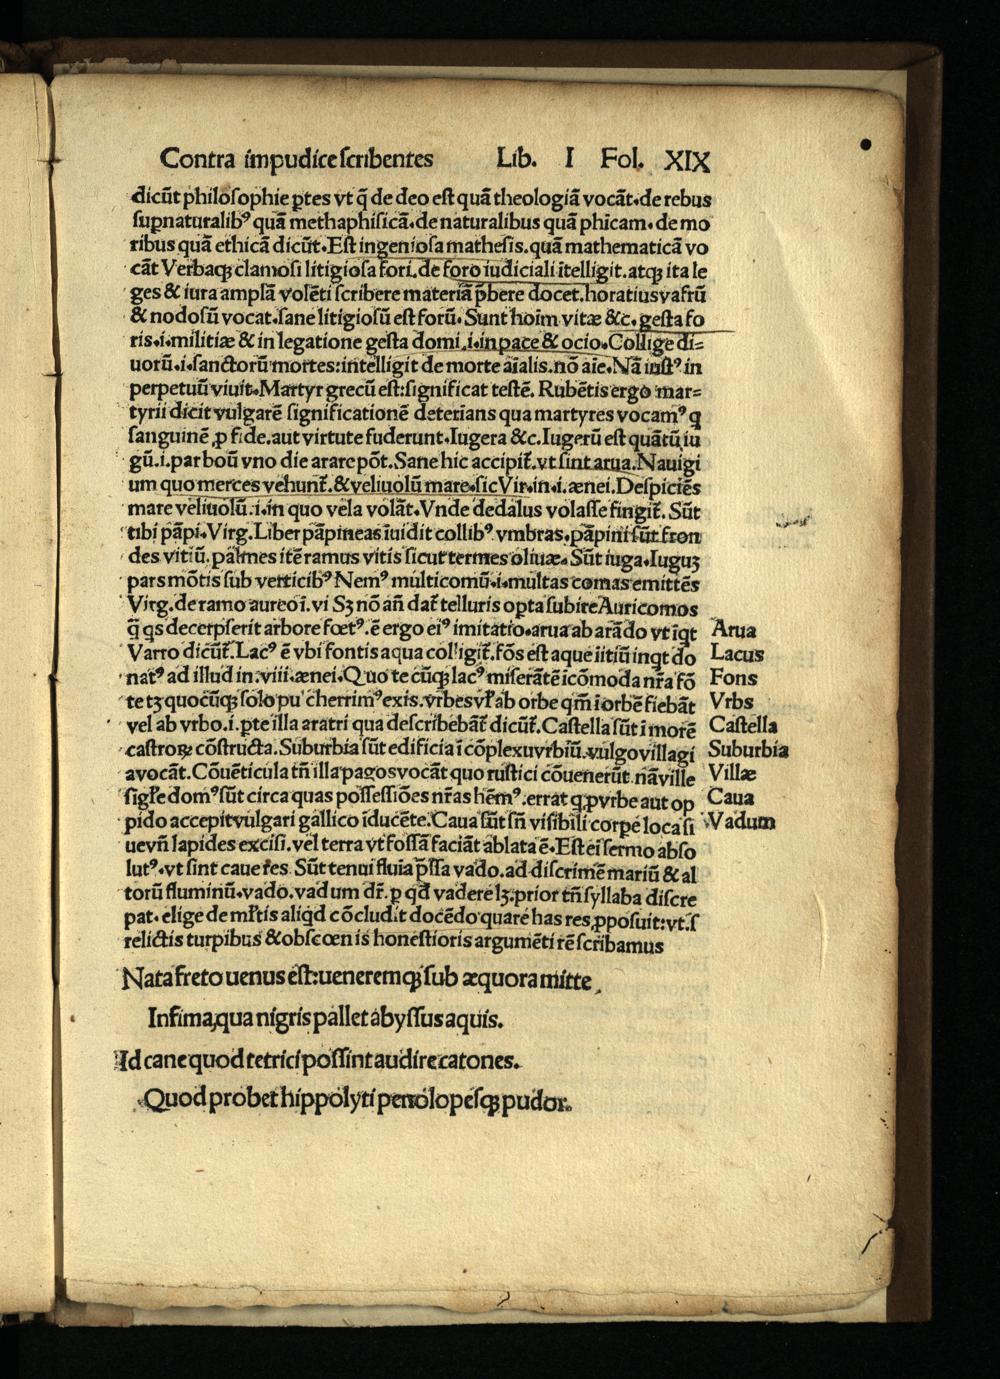 Contra impudice scribentes Lib. I Fol. XIX
dicūt philosophie ꝑtes vt q̄ de deo est quā theologiā vocāt. de rebus
suꝑnaturalibꝰ quā methaphisicā. de naturalibus quā phīcam. de mo
ribus quā ethicā dicūt. Est ingeniosa mathesis. quā mathematicā vo
cāt Verbaqꝫ clamosi litigiosa fori. de foro iudiciali ītelligit. atqꝫ ita le
ges & iura amplā volēti scribere materiā p̄bere docet. horatius vafrū
& nodosū vocat. sane litigiosū est forū. Sunt hoīm vitæ &c. gesta fo
ris .i. militiæ & in legatione gesta domi .i. in pace & ocio. Collige di=
uorū .i. sanctorū mortes: intelligit de morte aīalis. nō aīe. Nā iustꝰ in
perpetuū viuit. Martyr grecū est: significat testē. Rubētis ergo mar=
tyrii dicit vulgarē significationē deterians qua martyres vocamꝰ q
sanguinē ꝓ fide. aut virtute fuderunt. Iugera &c. Iugerū est quātū iu
gū .i. par boū vno die arare pōt. Sane hic accipit̄. vt sint arua. Nauigi
um quo merces vehunt̄. & veliuolū mare. sic Vir. in .i. ænei. Despiciēs
mare veliuolū .i. in quo vela volāt. Vnde dedalus volasse fingit̄. Sūt
tibi pāpi. Virg. Liber pāpineas īuidit collibꝰ vmbras. pāpini sūt fron
des vitiū. palmes itē ramus vitis sicut termes oliuæ. Sūt iuga. Iugūꝫ
pars mōtis sub verticibꝰ Nemꝰ multicomū .i. multas comas emittēs
Virg. de ramo aureo ī. vi Sꝫ nō añ dat̄ telluris opta subire Auricomos
q̄ qs decerpserit arbore fœtꝰ. ē ergo eiꝰ imitatio. arua ab arādo vt īqt Arua
Varro dicūt̄. Lacꝰ ē vbi fontis aqua colligit̄. fōs est aque īitiū inqt do Lacus
natꝰ ad illud in .viii. ænei. Quo te cūqꝫ lacꝰ miserātē īcōmoda nr̄a fō Fons
te tꝫ quocūqꝫ solo pulcherrimꝰ exis. vrbes vl' ab orbe qm̄ ī orbē fiebāt Vrbs
vel ab vrbo .i. ꝑte illa aratri qua describebāt̄ dicūt̄. Castella sūt ī morē Castella
castroꝝ cōstructa. Suburbia sūt edificia ī cōplexu vrbiū. vulgo villagi Suburbia
a vocāt. Cōuēticula tñ illa pagos vocāt quo rustici cōuenerūt. nā ville Villæ
domꝰ sūt circa quas possessiōes nr̄as hēmꝰ. errat q ꝓ vrbe aut op Caua
pido accepit vulgari gallico īducēte. Caua sūt sñ visibili corpe loca si Vadum
uevñ lapides excisi. vel terra vt fossā faciāt ablata ē. Est ei sermo abso
lutꝰ. vt sint cauernes. Sūt tenui fluia p̄ssa vado. ad discrimē mariū & al
torū fluminū. vado. vadum dr̄. ꝑ qd vadere lꝫ. prior tñ syllaba discre
pat. elige de mltis aliqd cōcludit docēdo quare has res ꝓposuit: vt. s
relictis turpibus & obscœnis honestioris argumēti rē scribamus
Nata freto uenus est: ueneremqꝫ sub æquora mitte
Infima, qua nigris pallet abyssus aquis.
Id cane quod tetrici possint audire catones.
Quod probet hippolyti penolopesqꝫ pudor.